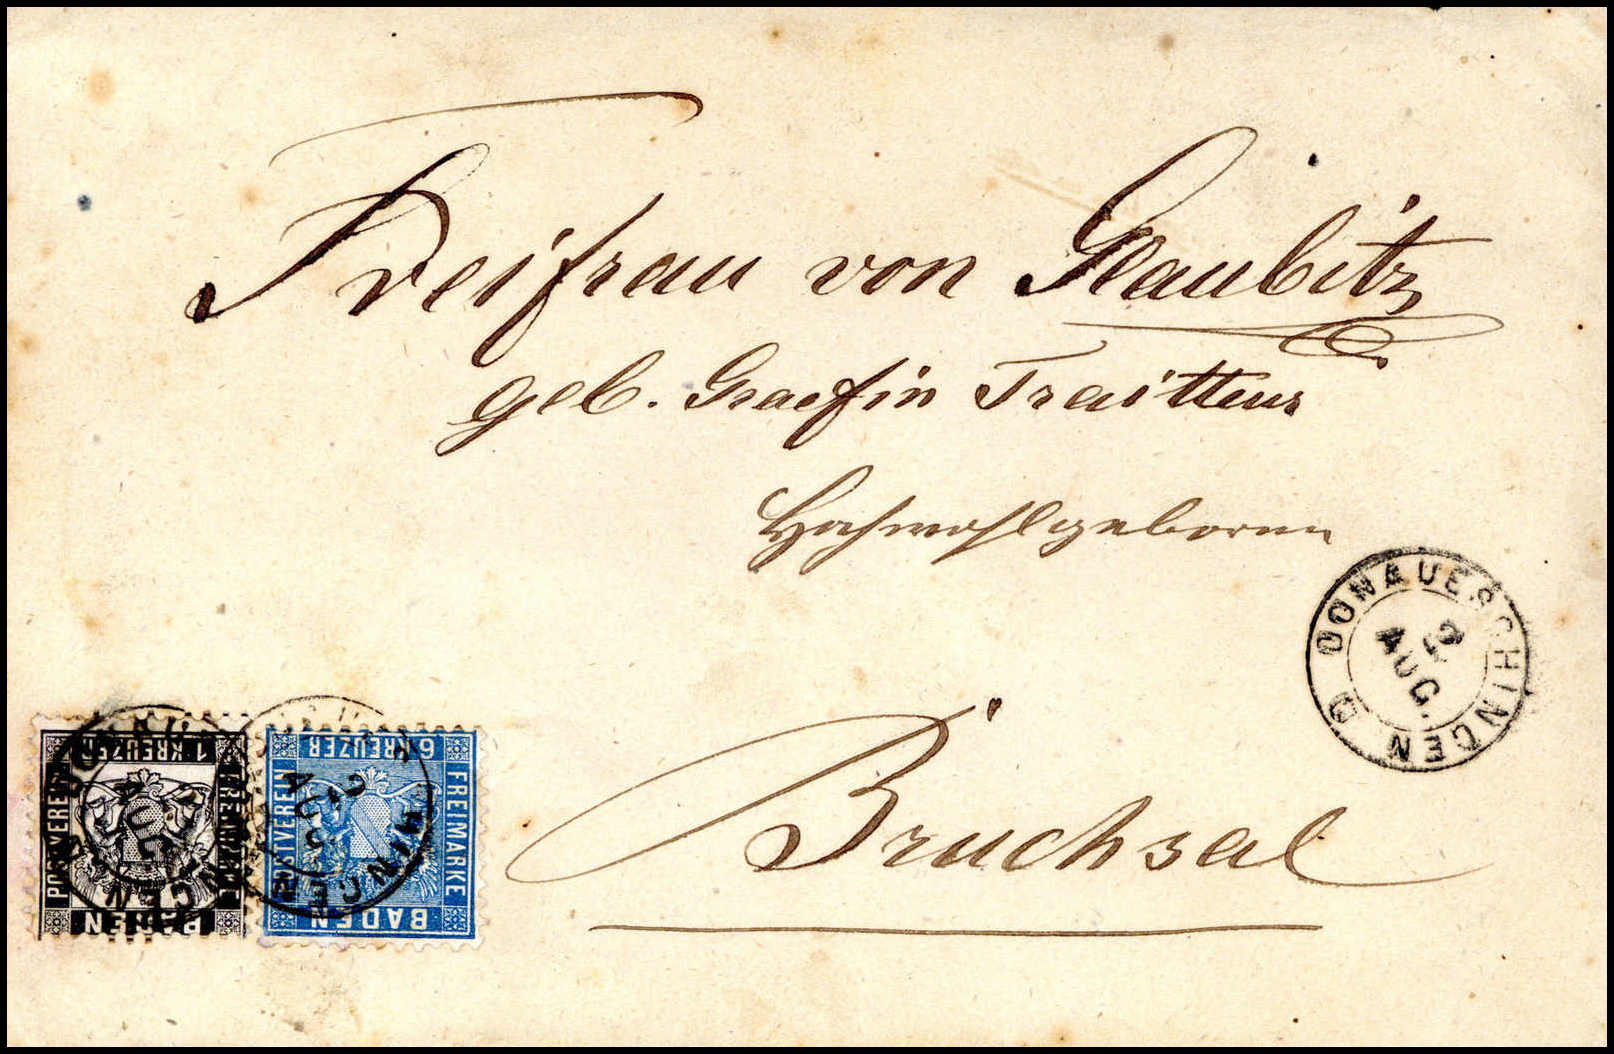 Freifrau von Glaubitz
geb. Graefin Traitteur
Hochwohlgeboren
DONAUESCHINGEN
2
AUG.
Bruchsal
1 KREUZER
POSTVEREIN
FREIMARKE
BADEN
6 KREUZER
POSTVEREIN
FREIMARKE
BADEN
2
AUG